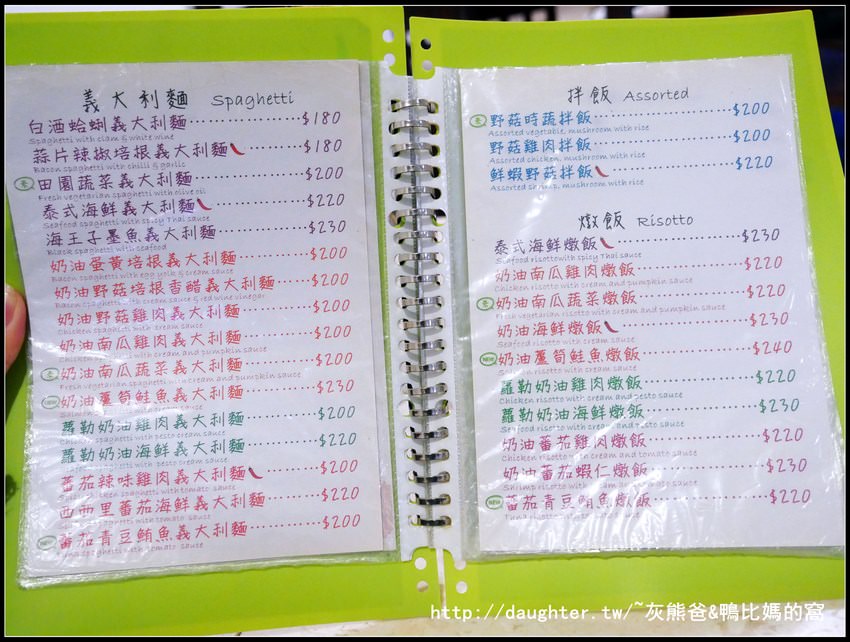 義大利麵 Spaghetti
白酒蛤蜊義大利麵 $180
Spaghetti with clam & white wine
蒜片辣椒培根義大利麵 $180
Bacon spaghetti with chilli & garlic
素 田園蔬菜義大利麵 $200
Fresh vegetarian spaghetti with olive oil
泰式海鮮義大利麵 $220
Seafood spaghetti with spicy Thai sauce
海王子墨魚義大利麵 $230
Black spaghetti with seafood
奶油蛋黃培根義大利麵 $200
Bacon spaghetti with egg yolk & cream sauce
奶油野菇培根香醋義大利麵 $200
Bacon spaghetti with cream sauce & red wine vinegar
奶油野菇雞肉義大利麵 $200
Chicken spaghetti with cream sauce
奶油南瓜雞肉義大利麵 $200
Chicken spaghetti with cream and pumpkin sauce
素 奶油南瓜蔬菜義大利麵 $200
Fresh vegetarian spaghetti with cream and pumpkin sauce
NEW 奶油蘆筍鮭魚義大利麵 $230
Salmon spaghetti with cream sauce
蘿勒奶油雞肉義大利麵 $200
Chicken spaghetti with pesto cream sauce
蘿勒奶油海鮮義大利麵 $220
Seafood spaghetti with pesto cream sauce
蕃茄辣味雞肉義大利麵 $200
chicken spaghetti with tomato sauce
西西里蕃茄海鮮義大利麵 $220
spaghetti with tomato sauce
NEW 蕃茄青豆鮪魚義大利麵 $200
Tuna spaghetti with tomato sauce
拌飯 Assorted
素 野菇時蔬拌飯 $200
Assorted vegetable, mushroom with rice
野菇雞肉拌飯 $200
Assorted chicken, mushroom with rice
鮮蝦野菇拌飯 $220
Assorted shrimp, mushroom with rice
燉飯 Risotto
泰式海鮮燉飯 $230
Seafood risotto with spicy Thai sauce
奶油南瓜雞肉燉飯 $220
Chicken risotto with cream and pumpkin sauce
素 奶油南瓜蔬菜燉飯 $220
Fresh vegetarian risotto with cream and pumpkin sauce
奶油海鮮燉飯 $230
Seafood risotto with cream sauce
NEW 奶油蘆筍鮭魚燉飯 $240
Salmon risotto with cream sauce
蘿勒奶油雞肉燉飯 $220
Chicken risotto with cream and pesto sauce
蘿勒奶油海鮮燉飯 $230
Seafood risotto with cream and pesto sauce
奶油蕃茄雞肉燉飯 $220
Chicken risotto with cream and tomato sauce
奶油蕃茄蝦仁燉飯 $230
Shrimp risotto with cream and tomato sauce
NEW 蕃茄青豆鮪魚燉飯 $220
Tuna risotto with tomato sauce
http://daughter.tw/~灰熊爸&鴨比媽的窩